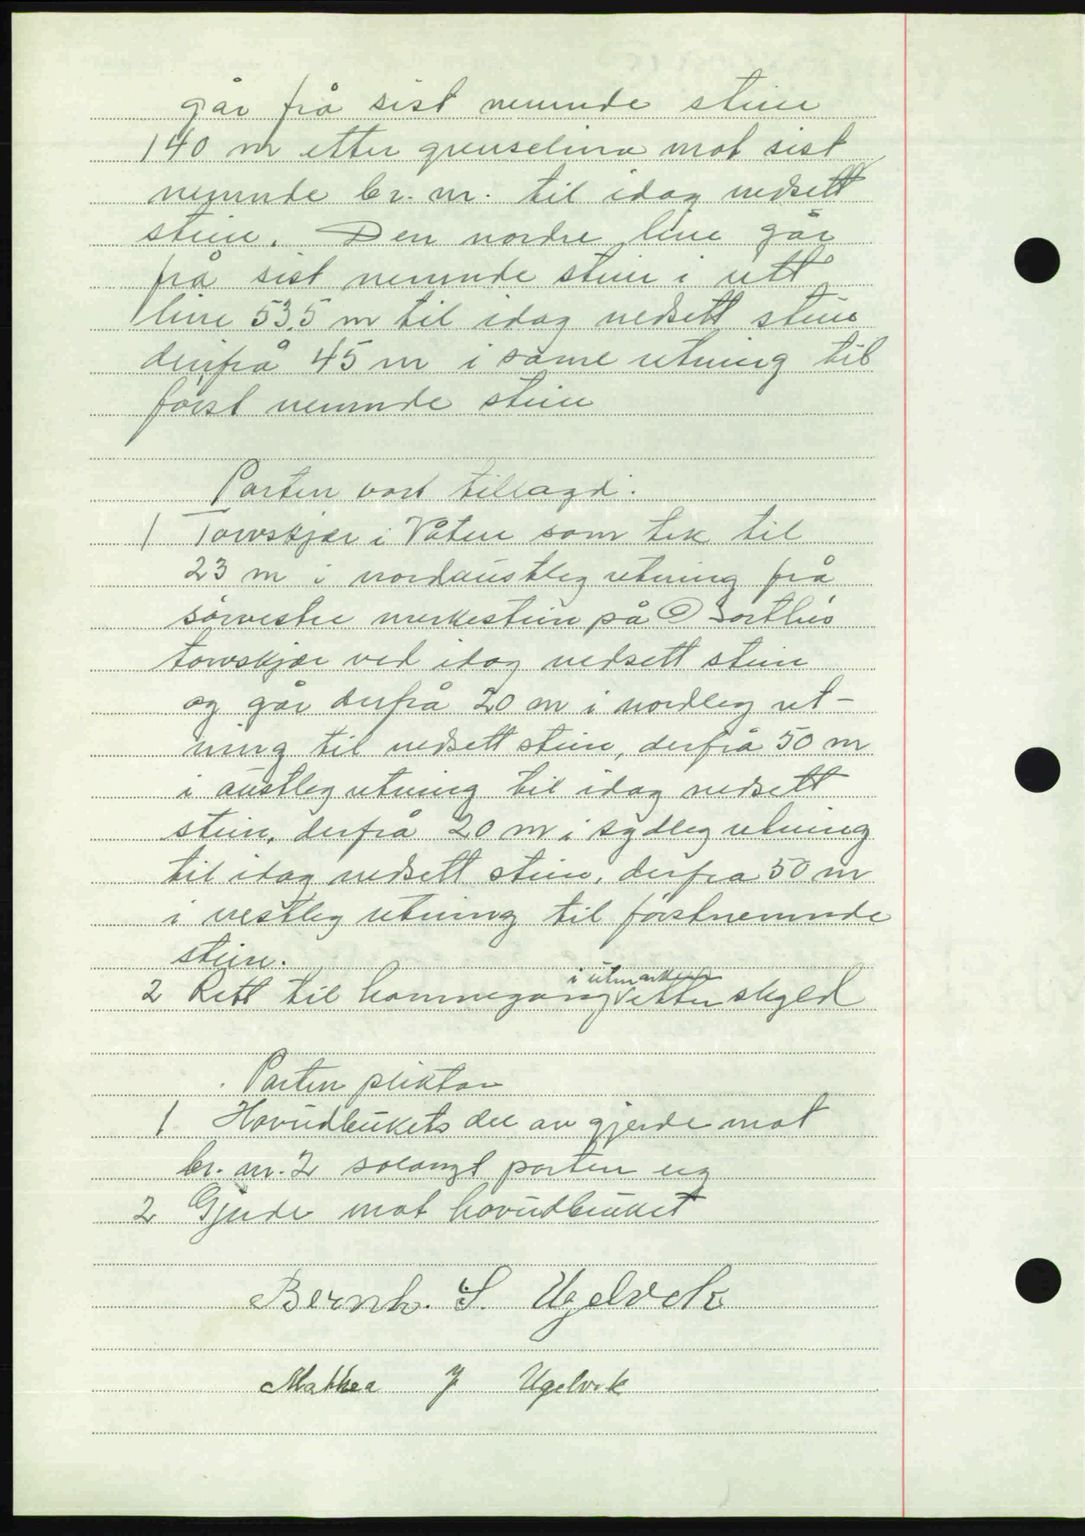 går frå sist nemnde stein
140 m etter grenselina mot sist
nemnde br. nr. til idag nedsett
stein. Den nordre line går
frå sist nemnde stein i rett
line 53.5 m til idag nedsett stein
derfrå 45 m i same retning til
først nemnde stein
Parten vart tillagd:
1 Torvskjær i Våten som tek til
23 m i nordaustleg retning frå
sørvestre merkestein på
torvskjær ved idag nedsett stein
og går derfrå 20 m i nordleg ret-
ning til nedsett stein, derfrå 50 m
i austleg retning til idag nedsett
stein, derfrå 20 m i sydleg retning
til idag nedsett stein, derfra 50 m
i vestleg retning til førstnemnde
stein.
2 Rett til hamnegang i utmarken etter skyld
Parten pliktar
1 Hovudbrukets del av gjerde mot
br. nr. 2 solangt parten eig
2 Gjerde mot hovudbruket
Bernh. S. Ugelvik
Mathea J Ugelvik